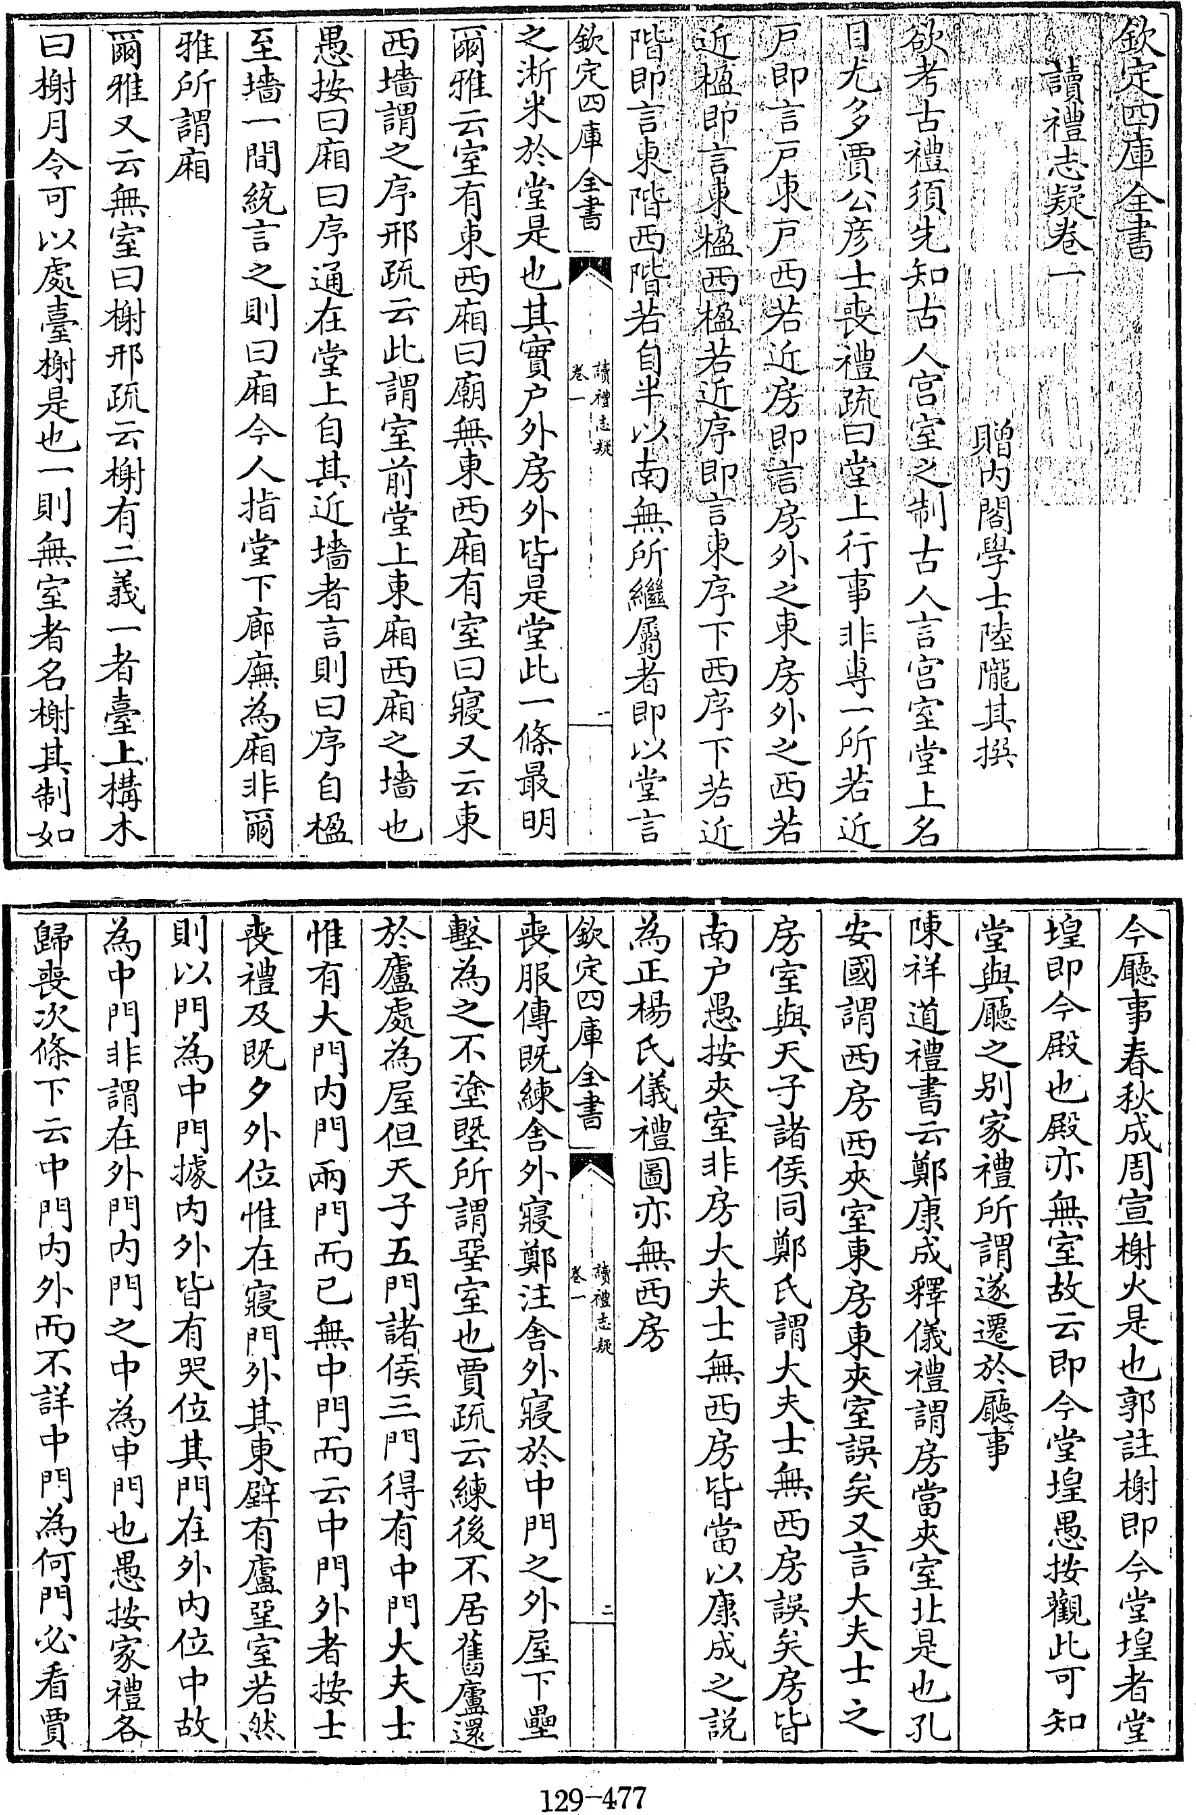 欽定四庫全書
讀禮志疑卷一
贈內閣學士陸隴其撰
欲考古禮須先知古人宫室之制古人言宫室堂上名
目尤多賈公彦士喪禮疏曰堂上行事非專一所若近
户即言户東户西若近房即言房外之東房外之西若
近楹即言東楹西楹若近序即言東序下西序下若近
階即言東階西階若自半以南無所繼屬者即以堂言
欽定四庫全書
讀禮志疑
卷一
一
之淅米於堂是也其實户外房外皆是堂此一條最明
爾雅云室有東西廂曰廟無東西廂有室曰寢又云東
西墻謂之序邢疏云此謂室前堂上東廂西廂之墻也
愚按曰廂曰序通在堂上自其近墻者言則曰序自楹
至墻一間統言之則曰廂今人指堂下廊廡為廂非爾
雅所謂廂
爾雅又云無室曰榭邢疏云榭有二義一者臺上構木
曰榭月令可以處臺榭是也一則無室者名榭其制如
今廳事春秋成周宣榭火是也郭註榭即今堂堭者堂
堭即今殿也殿亦無室故云即今堂堭愚按觀此可知
堂與廳之别家禮所謂遂遷於廳事
陳祥道禮書云鄭康成釋儀禮謂房當夾室北是也孔
安國謂西房西夾室東房東夾室誤矣又言大夫士之
房室與天子諸侯同鄭氏謂大夫士無西房誤矣房皆
南户愚按夾室非房大夫士無西房皆當以康成之説
為正楊氏儀禮圖亦無西房
欽定四庫全書
讀禮志疑
卷一
二
喪服傳既練舍外寢鄭注舍外寢於中門之外屋下壘
墼為之不塗塈所謂堊室也賈疏云練後不居舊廬還
於廬處為屋但天子五門諸侯三門得有中門大夫士
惟有大門内門兩門而已無中門而云中門外者按士
喪禮及既夕外位惟在寢門外其東壁有廬堊室若然
則以門為中門據内外皆有哭位其門在外内位中故
為中門非謂在外門内門之中為中門也愚按家禮各
歸喪次條下云中門内外而不詳中門為何門必看賈
129-477